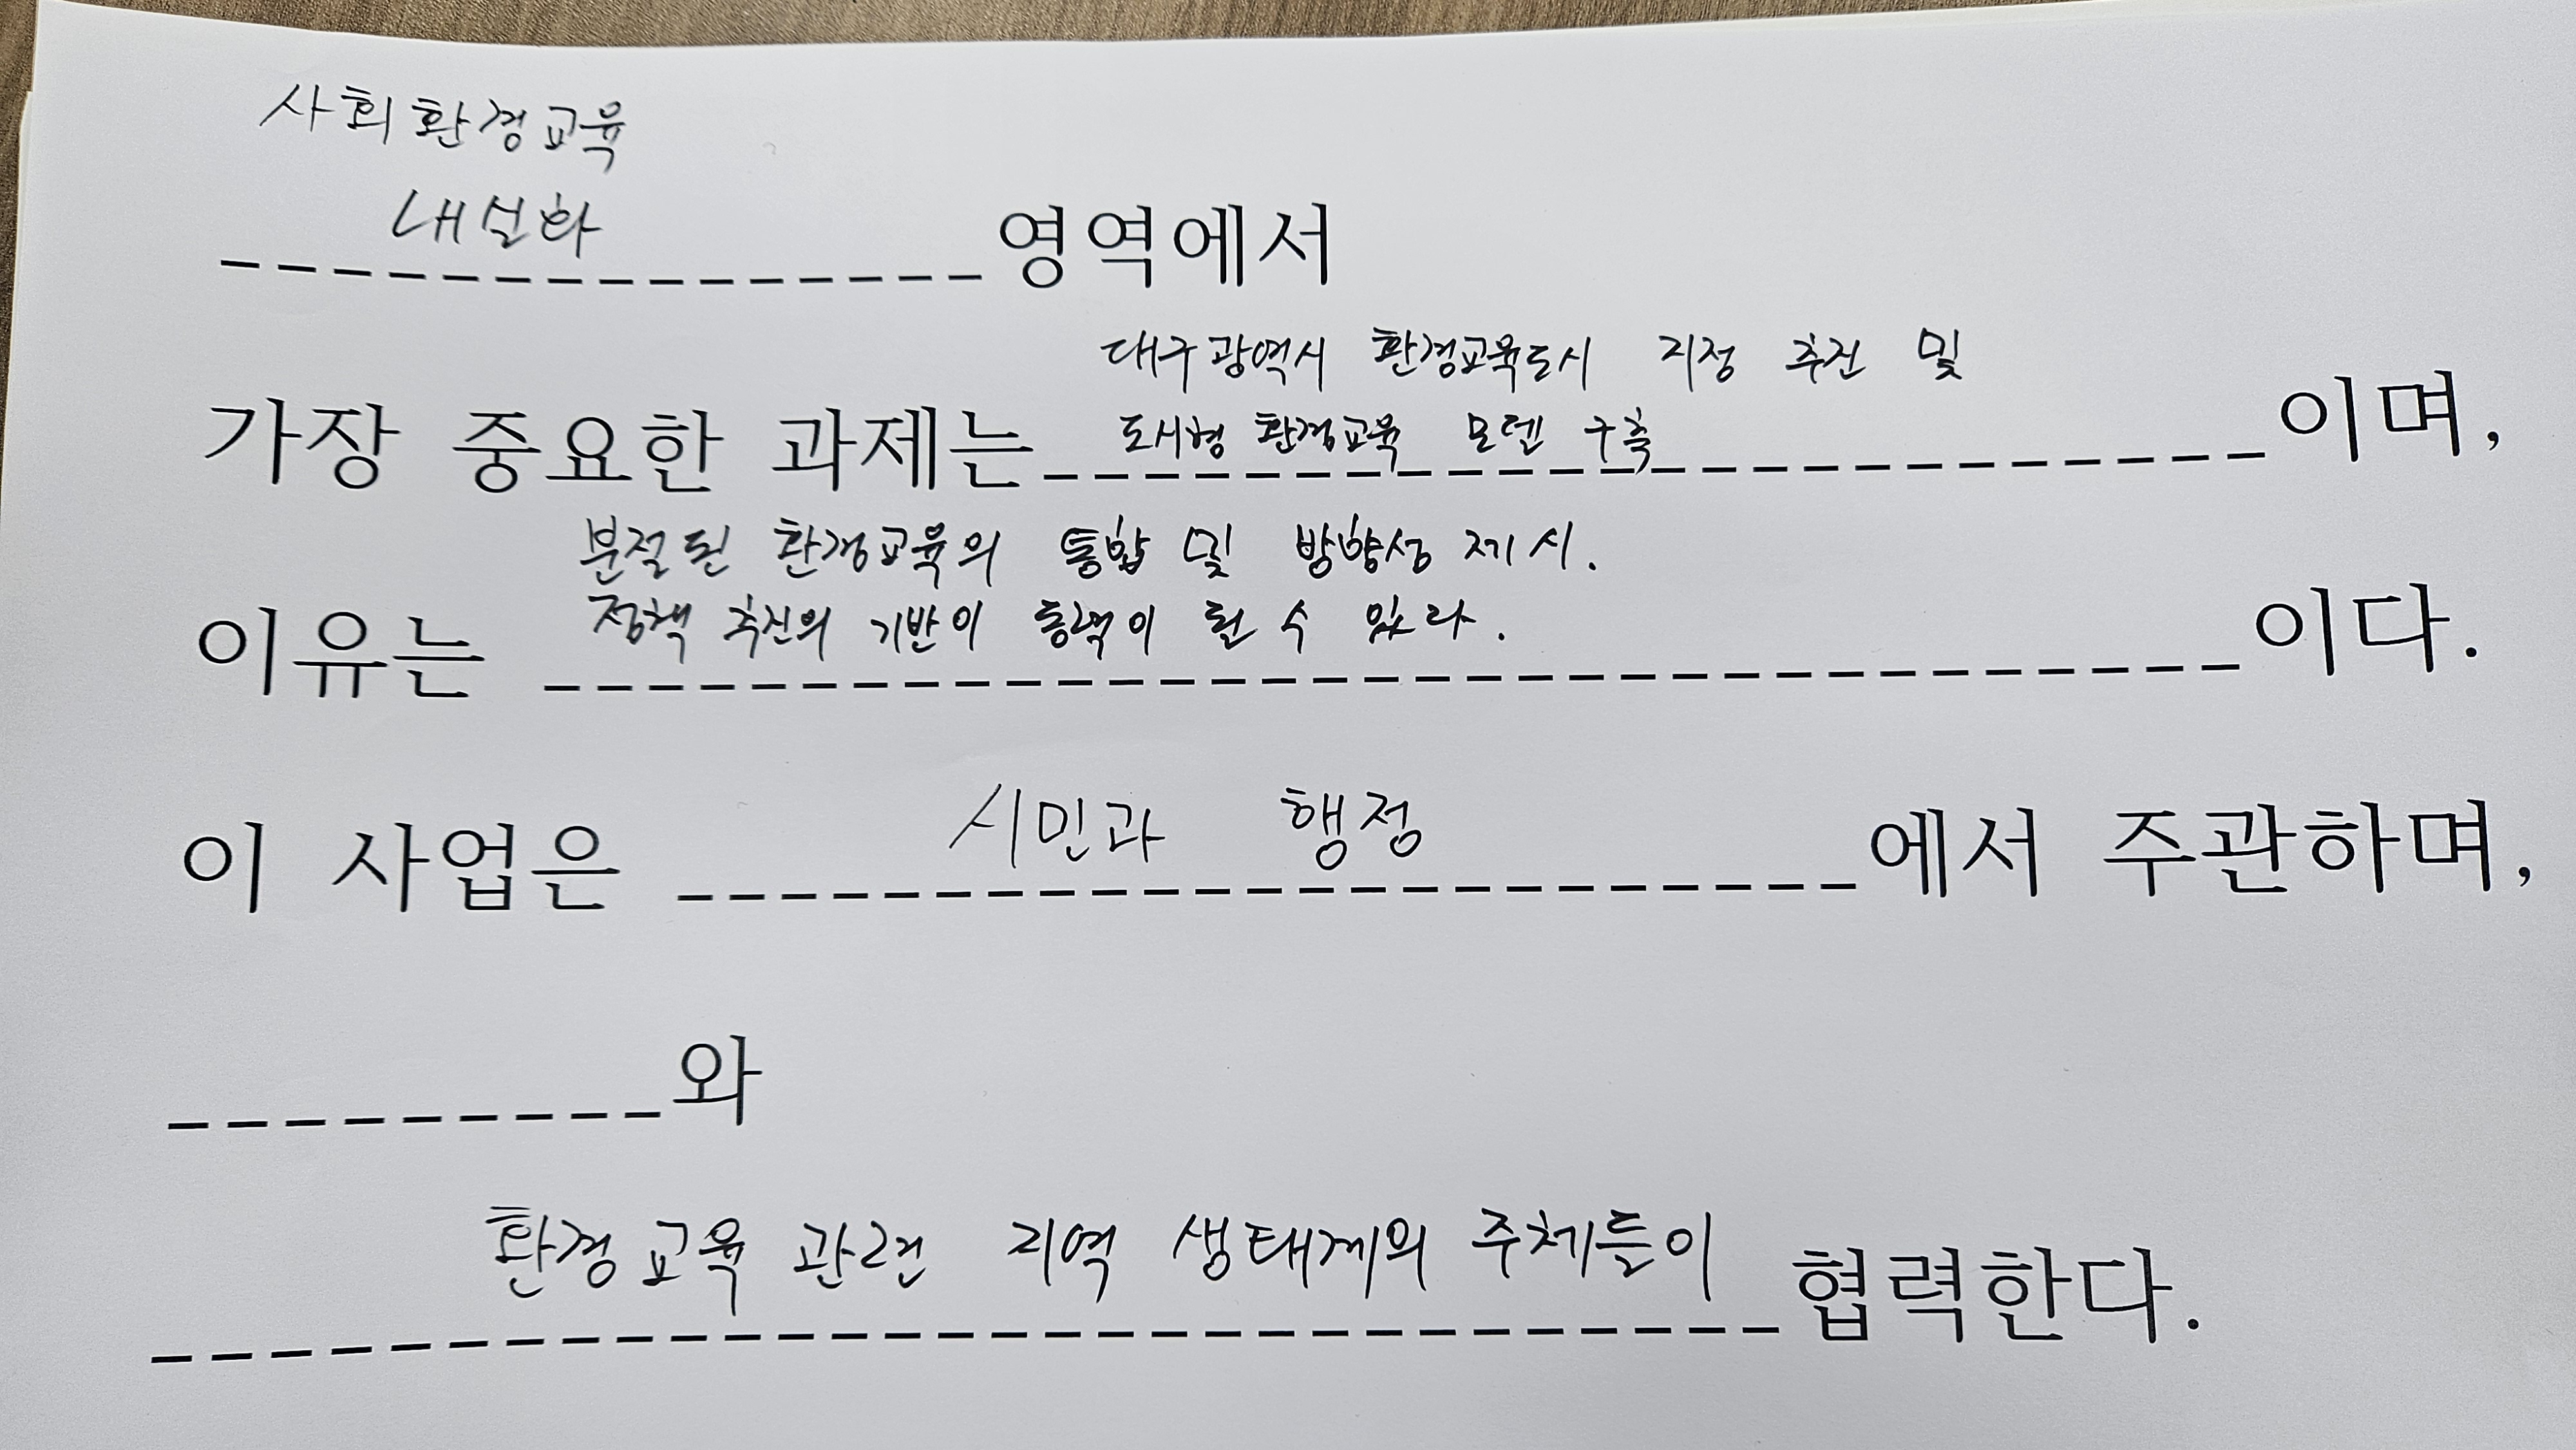 사회환경교육
내실화
영역에서
대구광역시 환경교육도시 지정 추진 및
가장 중요한 과제는 도시형 환경교육 모델 구축 이며,
분절된 환경교육의 통합 및 방향성 제시.
정책 추진의 기반이 동력이 될 수 있다.
이유는 이다.
이 사업은 시민과 행정 에서 주관하며,
와
환경교육 관련 지역 생태계의 주체들이 협력한다.